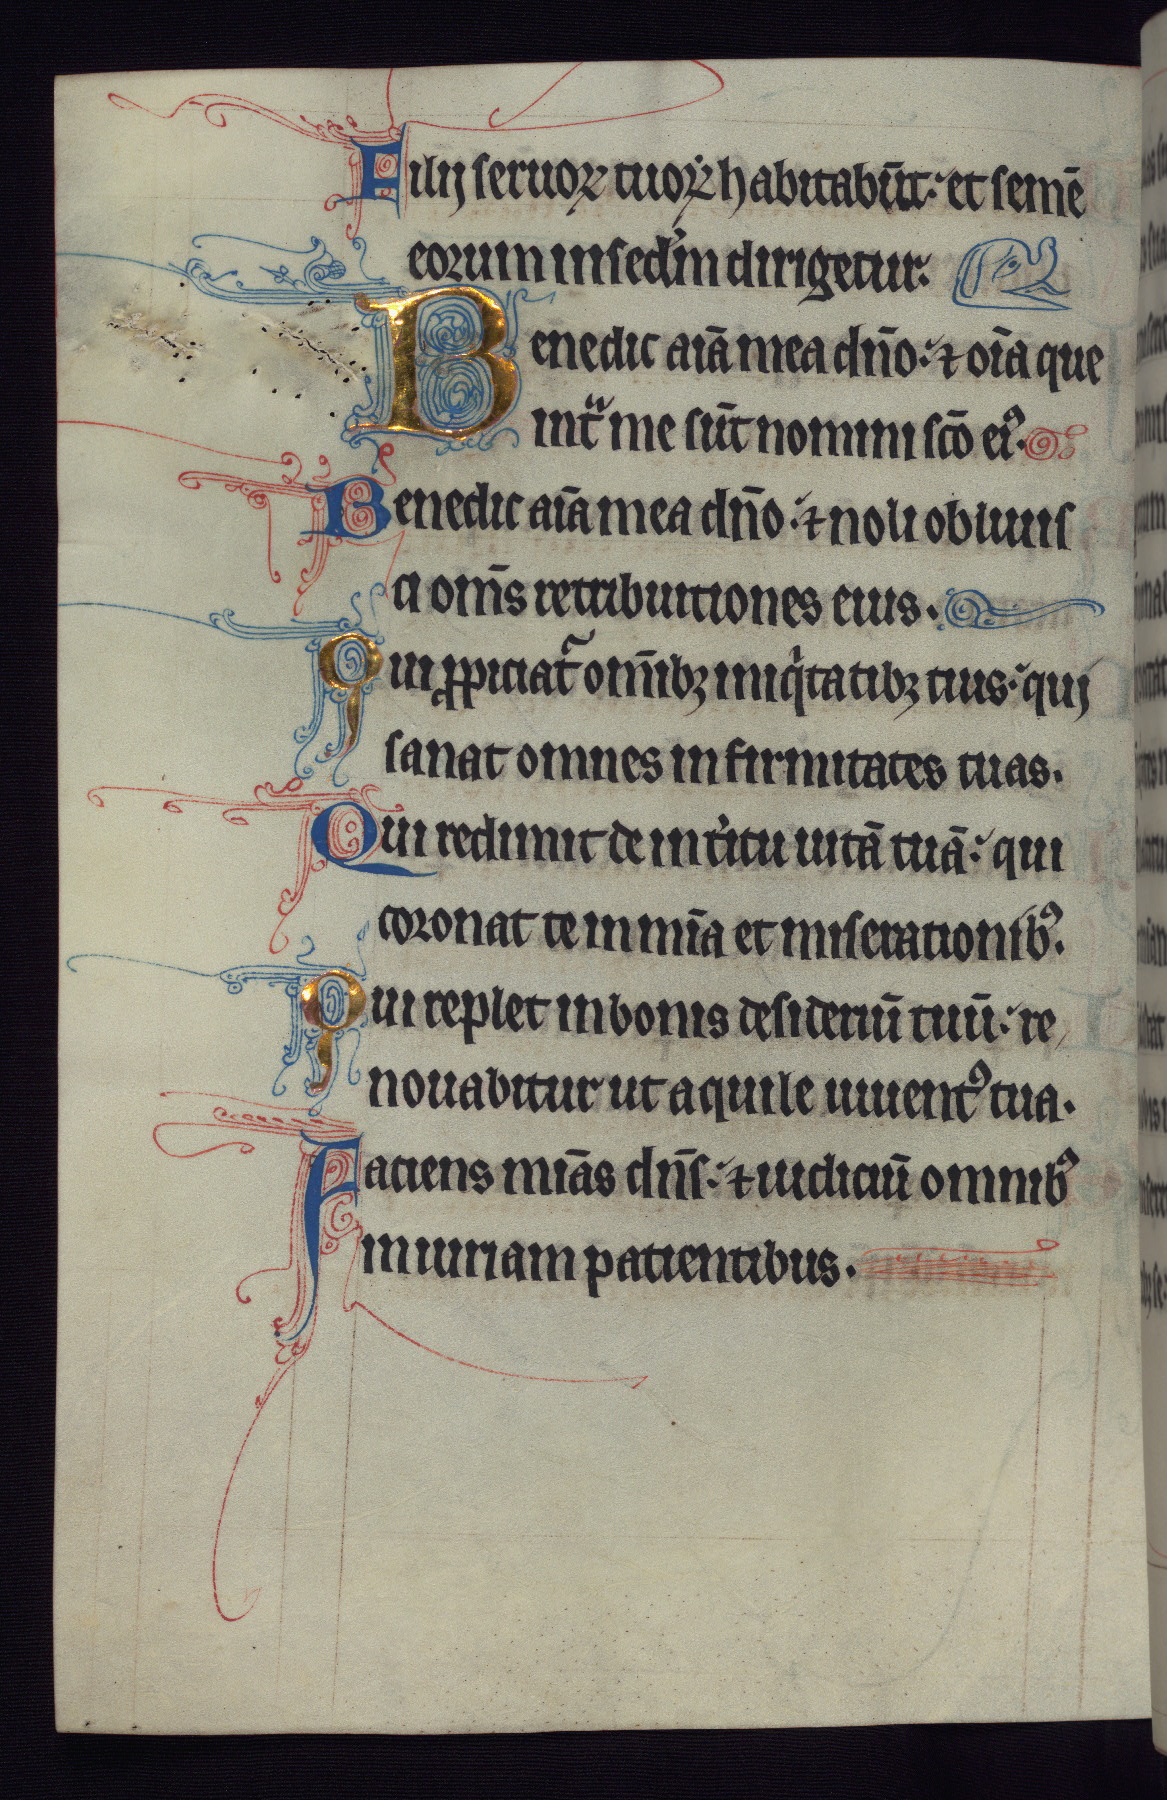 Filij seruoꝝ tuoꝝ habitabūt: et semē
eorum in sedm dirigetur:
Benedic aīa mea dn̄o: ⁊ oīa que
int͛ me sūt nomini sc̄o eiꝰ.
Benedic aīa mea dn̄o: ⁊ noli obliuis
ci om̄s retributiones eius.
Qui ꝓpiciat᷑ om̄ibꝫ iniqͥtatibꝫ tuis: quj
sanat omnes infirmitates tuas.
Qui redimit de int͛itu uitā tuā: qui
coronat te in mīa et miserationibꝰ.
Qui replet in bonis desideriū tuū: re
nouabitur ut aquile iuuentꝰ tua.
Faciens mīas dn̄s: ⁊ iudiciū omnibꝰ
iniuriam patientibus.